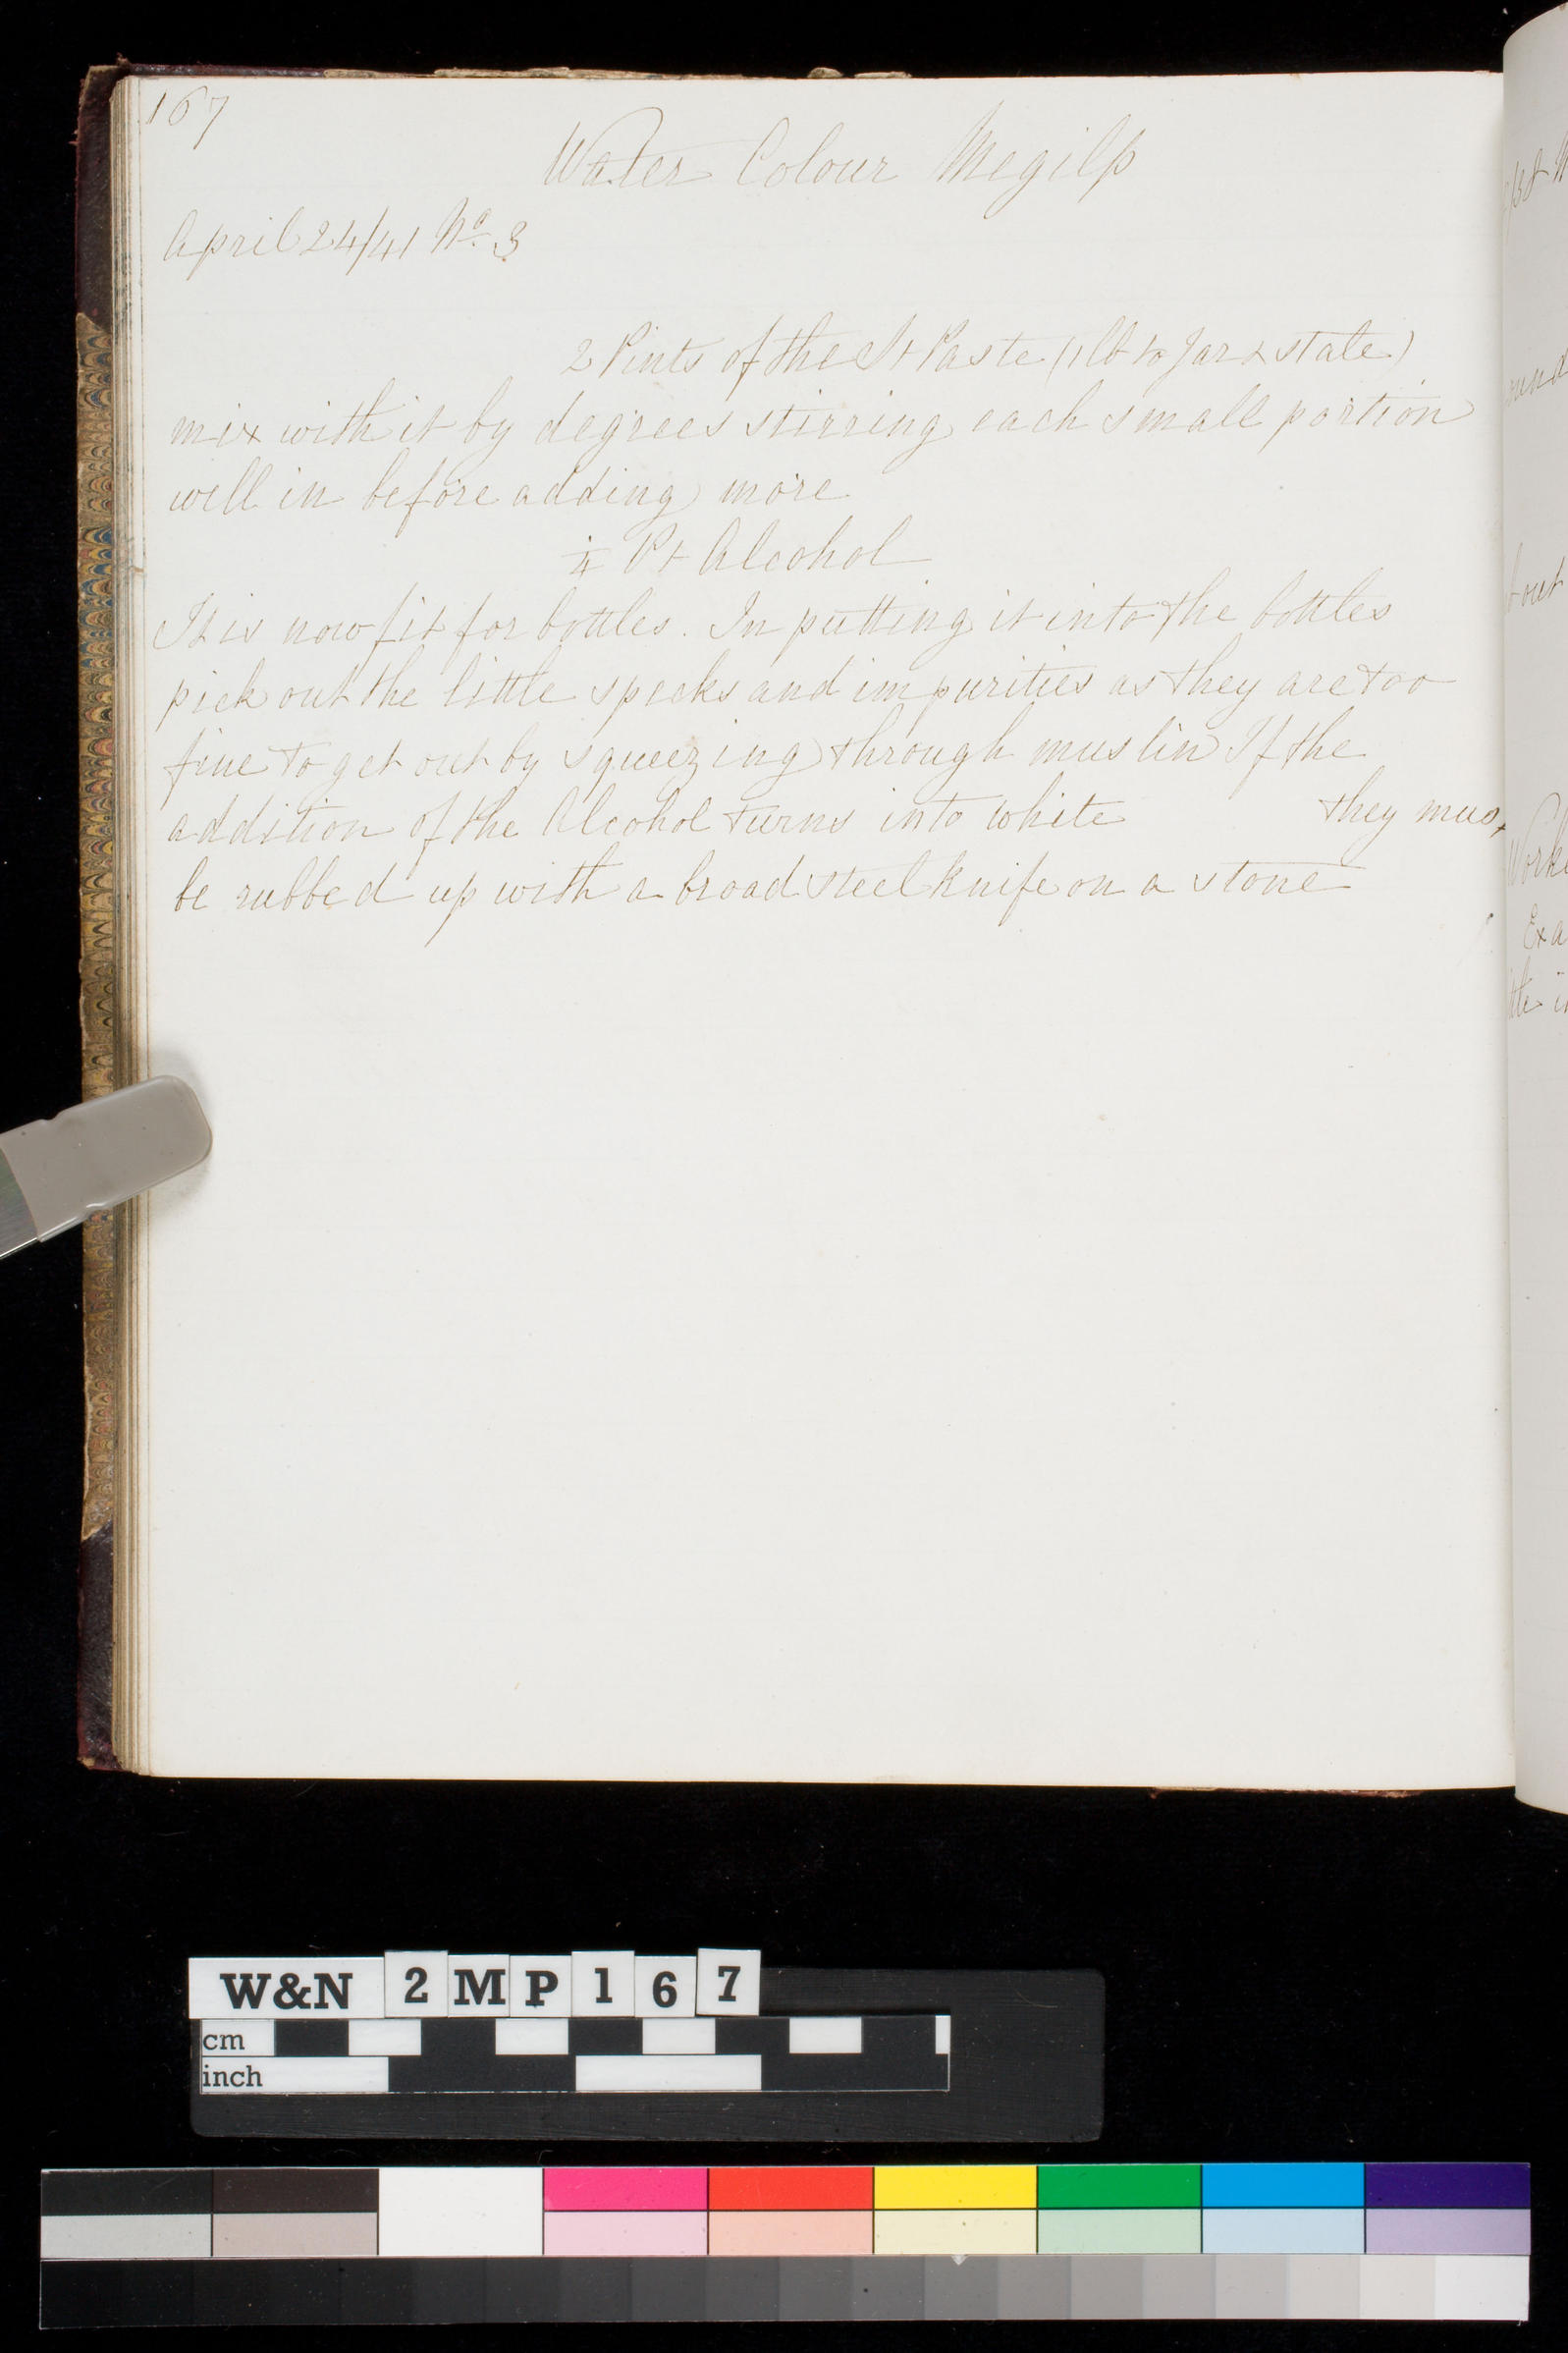 167
Water Colour Megilp
April 24/41 No. 3
2 Pints of the St Paste (1 lb to Jar & state)
mix with it by degrees stirring each small portion
well in before adding more
1/4 Pt Alcohol
It is now fit for bottles. In putting it into the bottles
pick out the little specks and impurities as they are too
fine to get out by squeezing through muslin If the
addition of the Alcohol turns into white they must
be rubbed up with a broad steel knife on a stone
out
Exa
W&N 2MP167
cm
inch